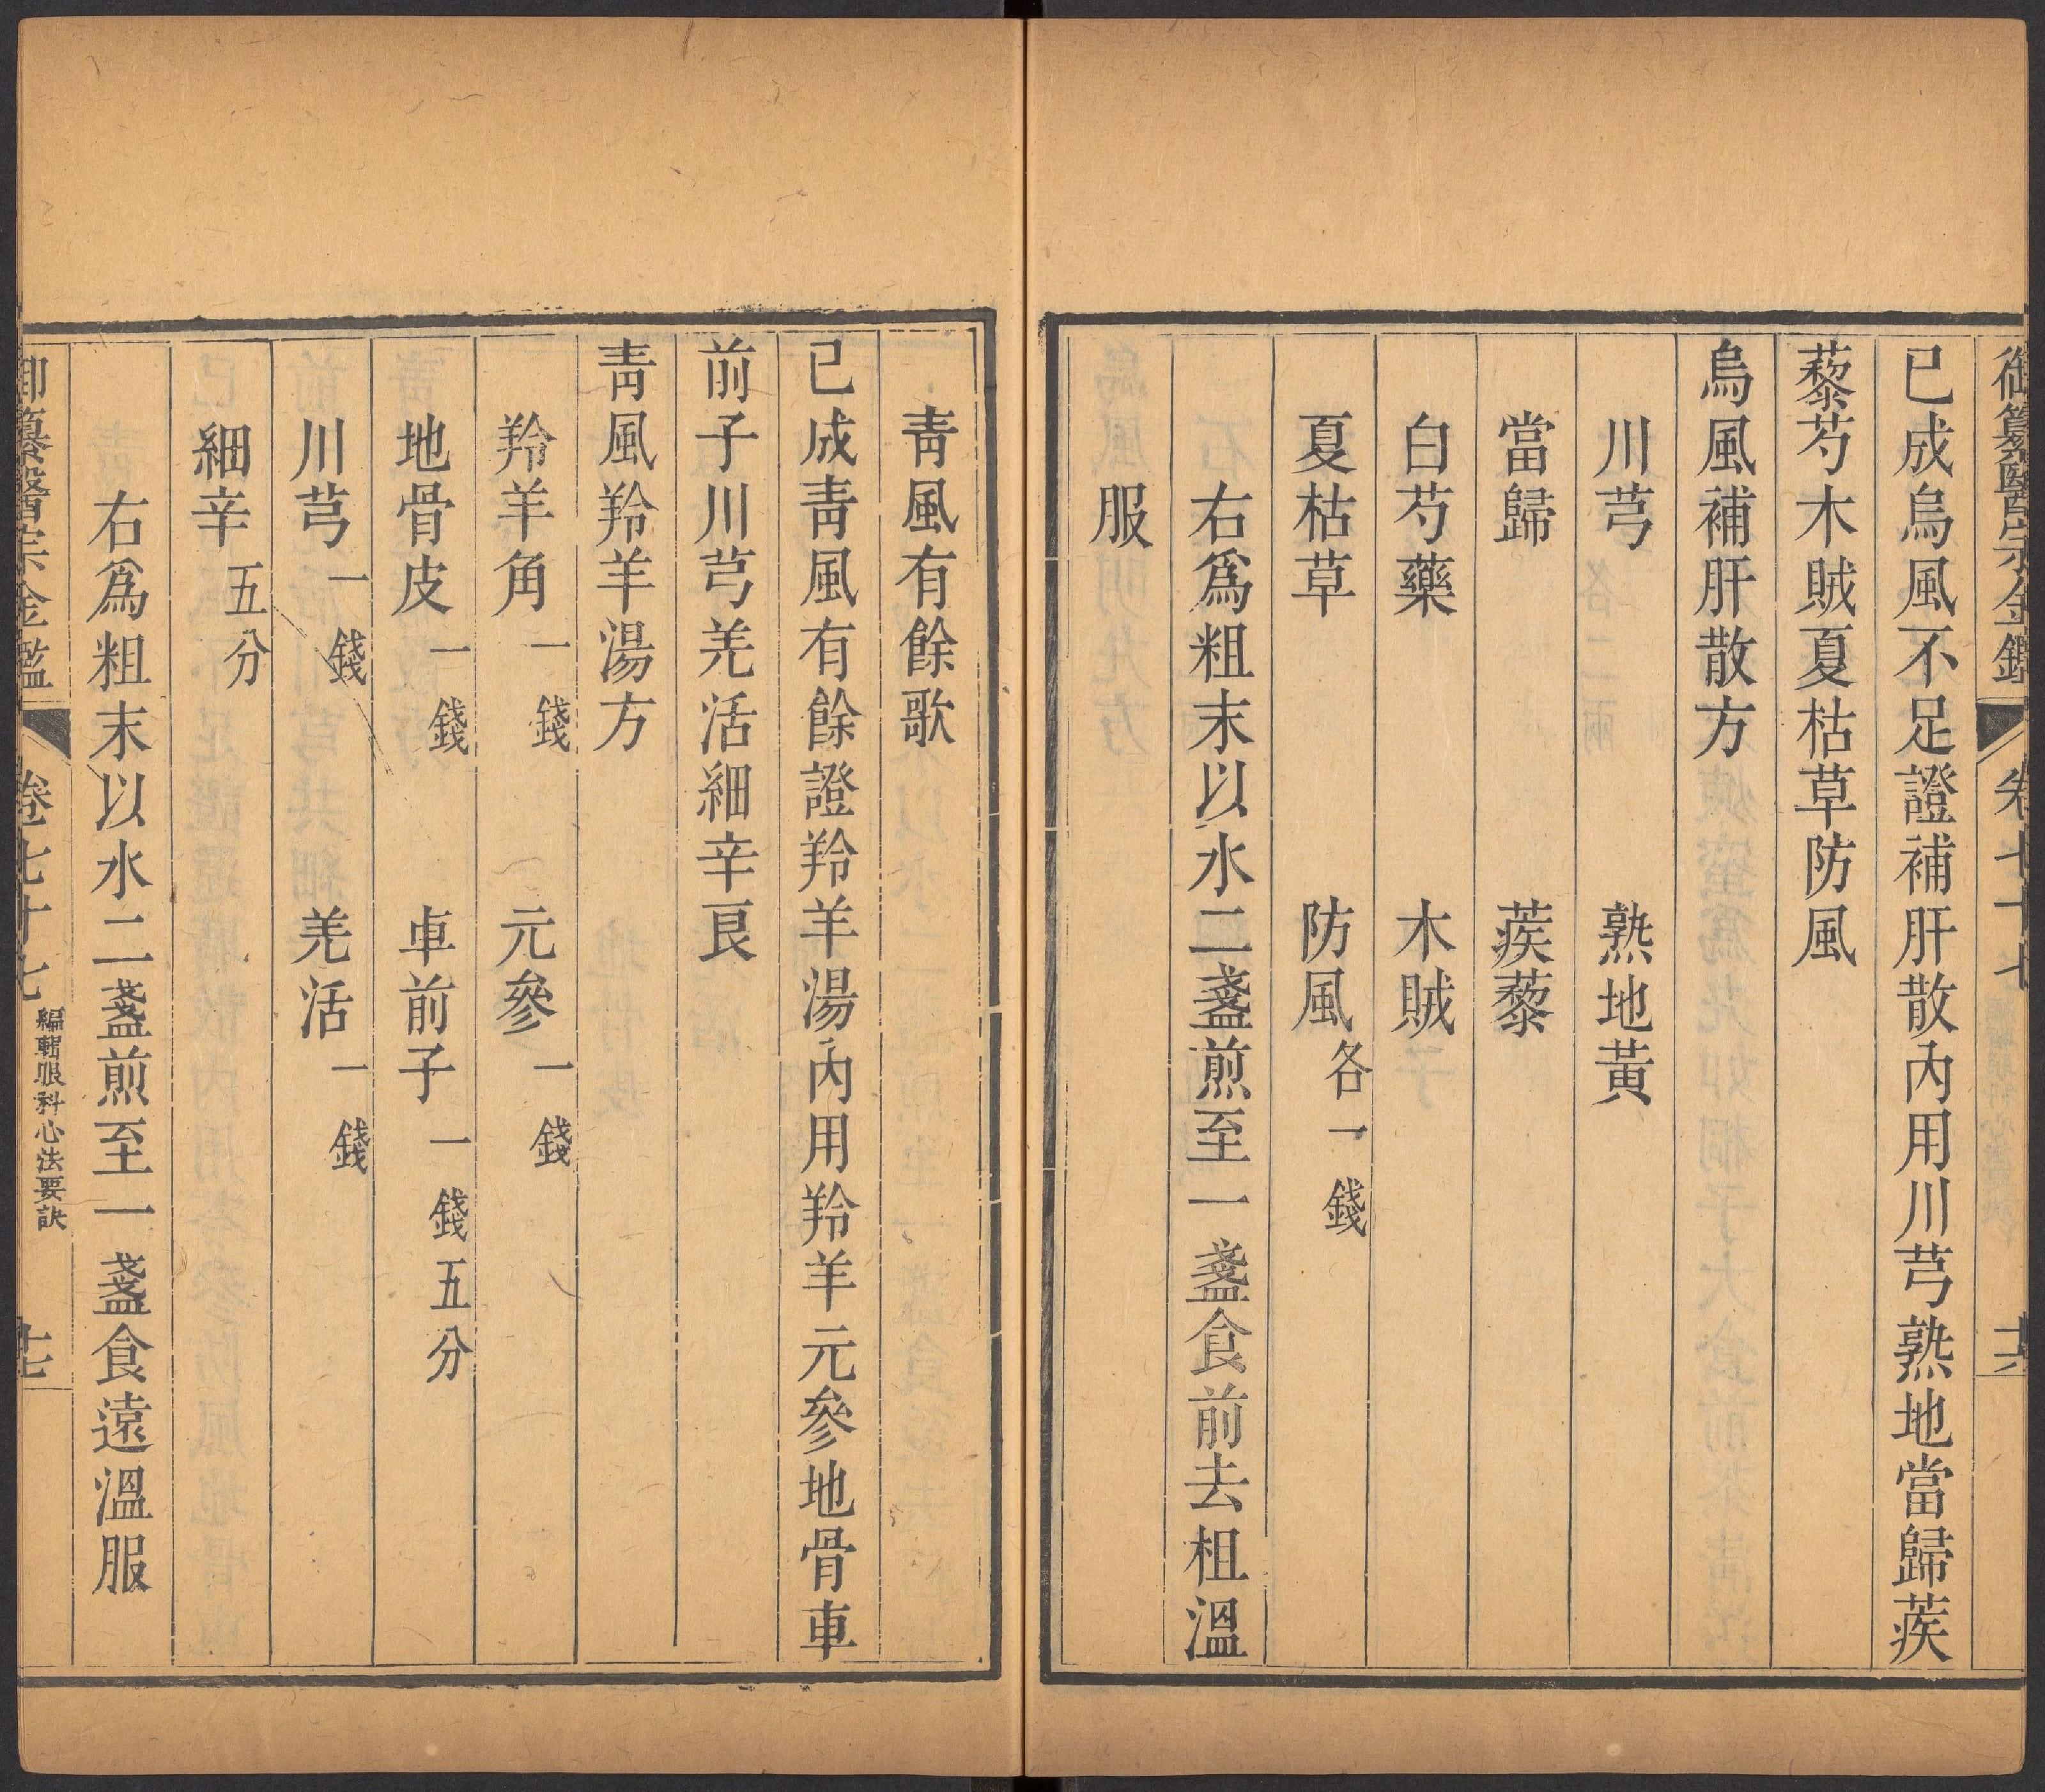 御纂醫宗金鑑 卷七十七 十六
已成烏風不足證補肝散內用川芎熟地當歸蒺
藜芍木賊夏枯草防風
烏風補肝散方
川芎 熟地黃
當歸 蒺藜
白芍藥 木賊
夏枯草 防風各一錢
右爲粗末以水二盞煎至一盞食前去柤溫
服
靑風有餘歌
已成靑風有餘證羚羊湯內用羚羊元參地骨車
前子川芎羌活細辛良
靑風羚羊湯方
羚羊角一錢 元參一錢
地骨皮一錢 車前子一錢五分
川芎一錢 羌活一錢
細辛五分
右爲粗末以水二盞煎至一盞食遠溫服
御纂醫宗金鑑 卷七十七 編輯眼科心法要訣 十七